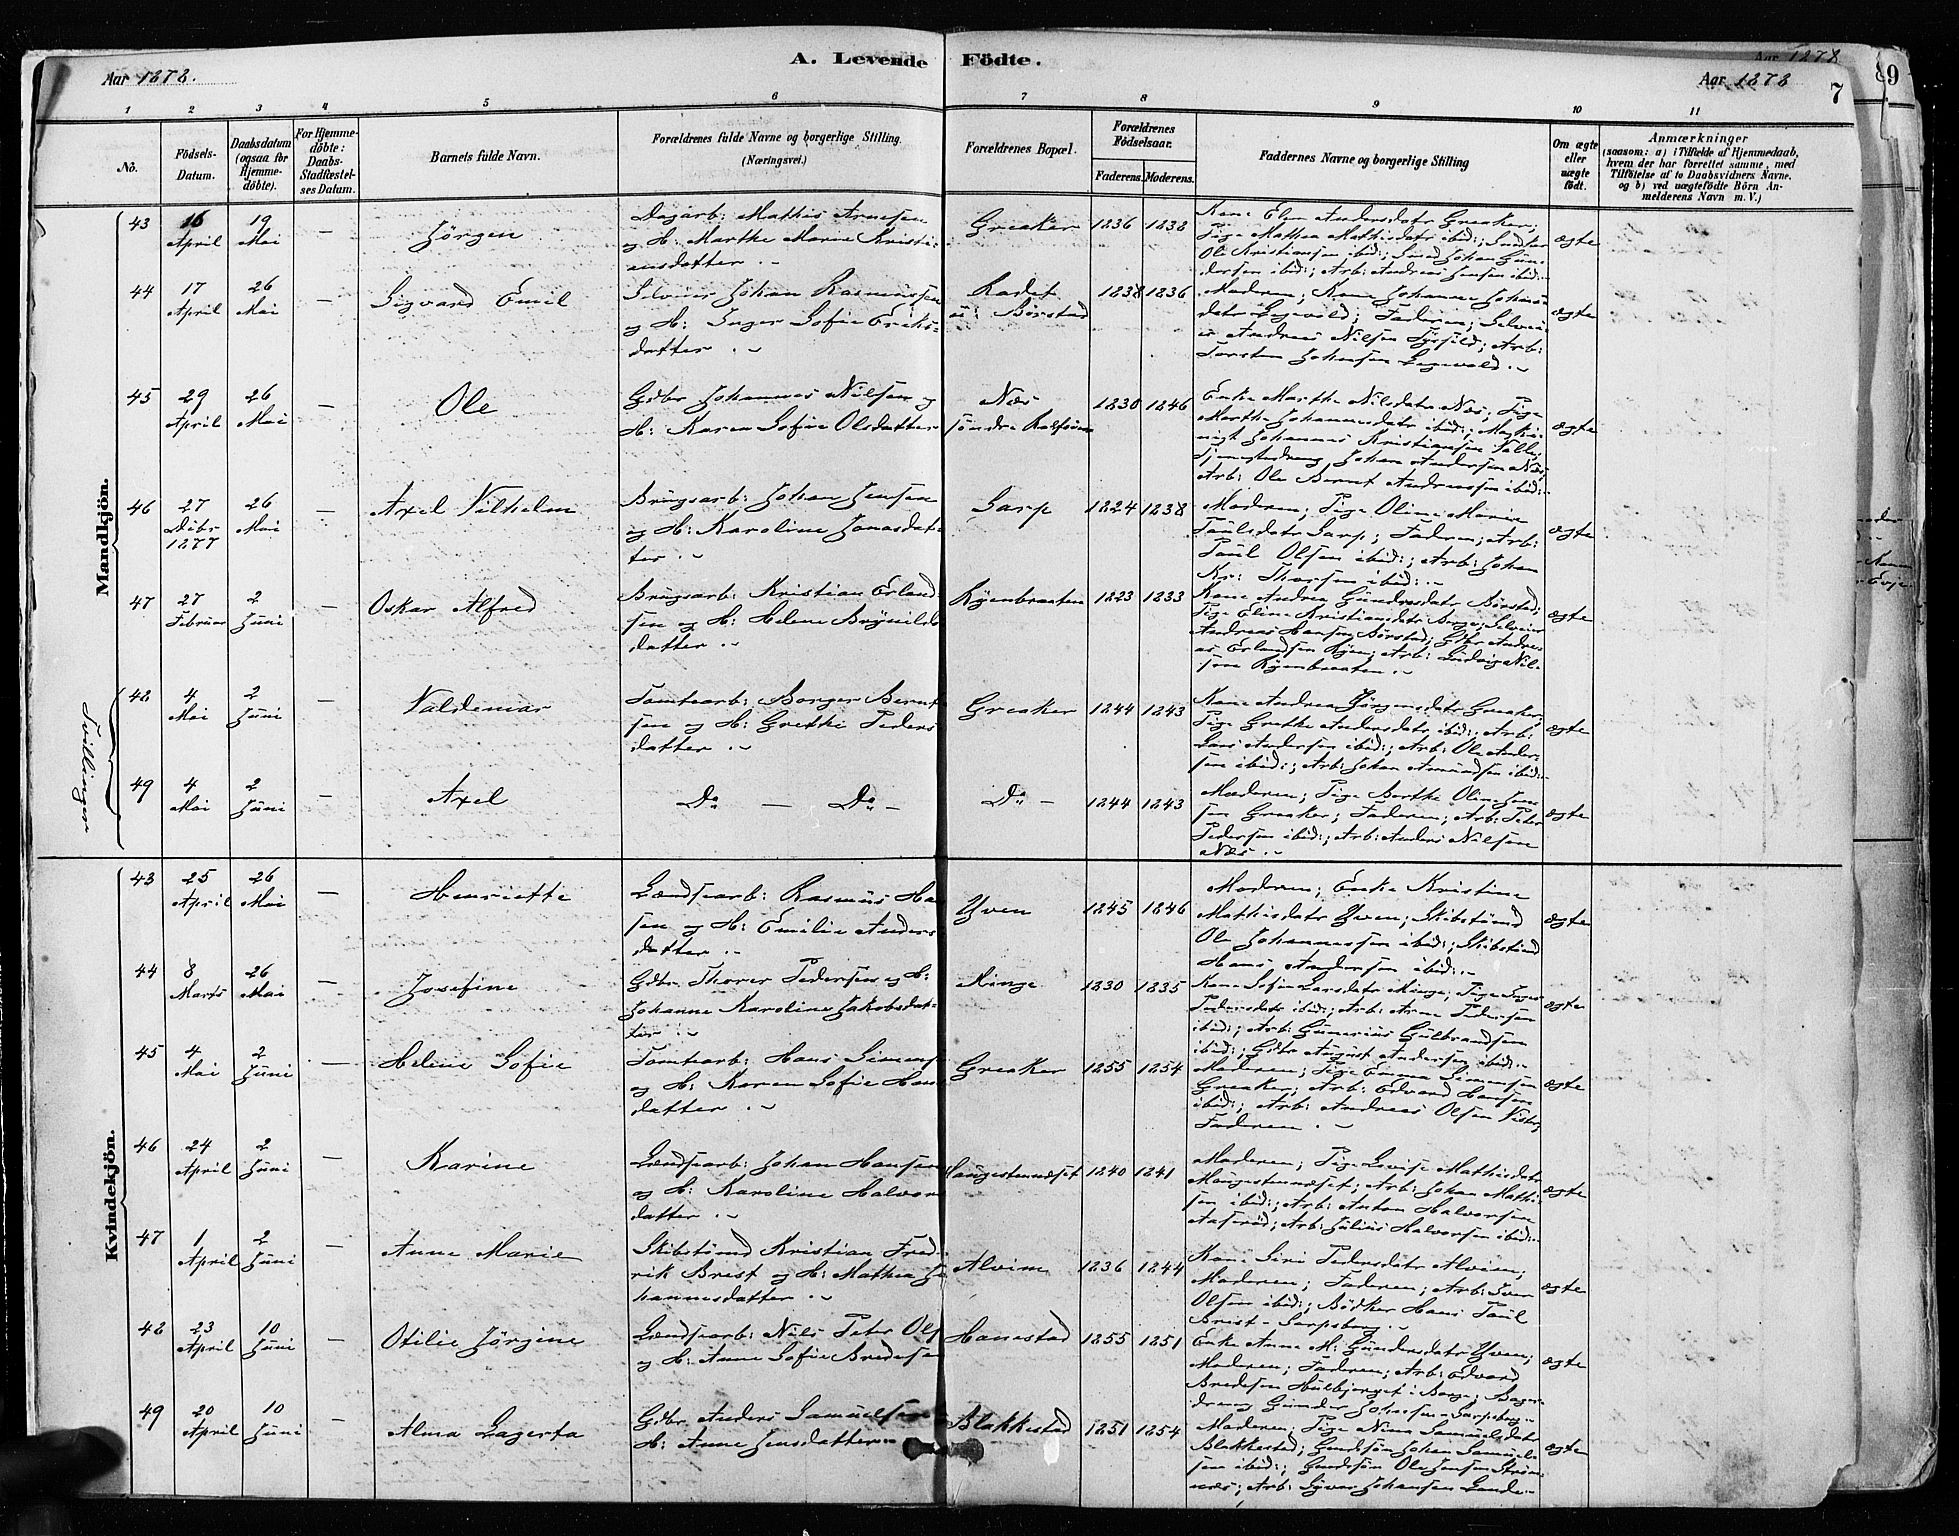 A. Levende Födte.
Aar 1878.
Aar 1878
Aar 1878
7
89
1 2 3 4 5 6 7 8 9 10 11
No.
Födsels-Datum.
Daabsdatum (ogsaa for Hjemmedöbte).
For Hjemmedöbte: Daabs-Stadfæstelses Datum.
Barnets fulde Navn.
Forældrenes fulde Navne og borgerlige Stilling. (Næringsvei.)
Forældrenes Bopæl.
Forældrenes Födselsaar.
Faderens. Moderens.
Faddernes Navne og borgerlige Stilling
Om ægte eller uægte födt.
Anmærkninger
(saasom: a) i Tilfælde af Hjemmedaab,
hvem der har forrettet samme, med
Tilföielse af to Daabsvidners Navne.
og b) ved uægtefödte Börn Anmelderens Navn m. V.)
Mandkjön.
43 16 April 19 Mai — Jörgen
Dagarb: Mathis Arnesen
og H: Marthe Marne Kristi-
ansdatter.
Greaker 1836 1838
Kone Elen Andersdatr Greaker;
Pige Mathea Mathisdatr ibid:; Snedker
Ole Kristiansen ibid:; Smed Johan Gun-
dersen ibid:; Arb: Andreas Jensen ibid:
ægte
44 17 April 26 Mai — Sigvard Emil
Selveier Johan Rasmussen
og H: Inger Sofie Eriks-
datter.
Rødet u: Børstad 1838 1836
Moderen; Kone Johanne Johans-
datr; Faderen; Selvei-
er Andreas Nilsen; Arb:
Torsten Johansen
ægte
45 29 April 26 Mai — Ole
Gdbr Johannes Nilsen og
H: Karen Sofie Olsdatter
Næs søndre 1830 1846
Enke Marthe Nilsdatr Næs; Pige
Marthe Johannesdatr ibid:; Maski-
nist Johannes Kristiansen Valle;
Johan Andersen Næs;
Arb: Ole Bernt Andreassen ibid:
ægte
46 27 Debr 1877 26 Mai — Axel Vilhelm
Brugsarb: Johan Jensen
og H: Karoline Jonasdat-
ter.
Sarp 1824 1838
Moderen; Pige Oline Marie
Paulsdatr Sarp; Faderen; Arb:
Paul Olsen ibid:; Arb: Johan
Kr: Thorsen ibid:
ægte
47 27 Februar 2 Juni — Oskar Alfred
Brugsarb: Kristian Erland-
sen og H: Helene Brynilds-
datter.
Ryenbraaten 1823 1833
Kone Andrea Gundersdatr Børstad;
Pige Eline Kristiansdatr Borge; Selveier
Andreas Hansen Børstad; Gdbr Andre-
as Erlandsen Ryen; Arb: Ludvig Nil-
sen Ryenbraaten.
ægte
Tvillinger
48 4 Mai 2 Juni — Valdemar
Tomtearb: Borger Bernt-
sen og H: Grethe Peders-
datter.
Greaker 1844 1843
Kone Andrea Jörgensdatr Greaker;
Pige Grethe Andersdatr ibid:; Arb:
Lars Andersen ibid:; Arb: Ole Ander-
sen ibid:; Arb: Johan Amundsen ibid:
ægte
49 4 Mai 2 Juni — Axel
Do — Do — Do — 1844 1843
Moderen; Pige Berthe Oline Jen-
sen Greaker; Faderen; Arb: Peter
Pedersen ibid:; Arb: Anders Nilsen
Næs.
ægte
Kvindekjön.
43 25 April 26 Mai — Henriette
Lændsearb: Rasmus Han-
sen og H: Emilie Anders-
datter.
Yven 1845 1846
Moderen; Enke Kristine
Mathisdatr Yven; Skibstømd
Ole Johannessen ibid:; Skibstømd
Hans Andersen ibid:
ægte
44 8 Marts 26 Mai — Josefine
Gdbr Thorer Pedersen og H:
Johanne Karoline Jakobsdat-
ter.
Minge 1830 1835
Kone Sofie Larsdatr Minge; Pige Inger
Pedersdatr ibid:; Arb: Arne Pedersen
ibid:; Arb: Gunerius Gulbrandsen
ibid:; Gdbr August Andersen ibid:
ægte
45 4 Mai 2 Juni — Helene Sofie
Tomtearb: Hans Simensen
og H: Karen Sofie Hans-
datter.
Greaker 1855 1854
Moderen; Pige Emma Simensen
Greaker; Arb: Edvard Hansen
ibid:; Arb: Andreas Olsen Vister;
Faderen.
ægte
46 24 April 2 Juni — Karine
Lændsearb: Johan Hansen
og H: Karoline Halvors-
datter.
Haugestenæset 1840 1841
Moderen; Pige Lovise Mathisdatr
; Arb: Johan Mathi-
sen ibid:; Arb: Anton Halvorsen
; Arb: Julius Halvorsen ibid:
ægte
47 1 April 2 Juni — Anne Marie
Skibstømd Kristian Fred-
rik Brest og H: Mathea Jo-
hannesdatter.
Alvim 1836 1844
Kone Siri Pedersdatr Alvim;
Moderen; Faderen; Arb: Iver
Olsen ibid:; Bødker Hans Paul
Brest - Sarpsborg.
ægte
48 23 April 10 Juni — Otilie Jörgine
Lændsearb: Nils Peter Ols
og H: Anne Sofie Bredesen
Hanestad 1855 1851
Enke Anne M: Gundersdatr Yven;
Moderen; Faderen; Arb: Edvard
Bredesen i Borge; Bager-
dreng Gunder Johansen - Sarpsborg.
ægte
49 20 April 10 Juni — Alma Lagerta
Gdbr Anders Samuelsen
H: Anne Jensdatter
Blakkestad 1851 1854
Moderen; Pige Nina Samuelsdatr
Blakkestad; Gaardsøn Johan Samuel-
sen ibid:; Gaardsøn Ole Jensen Strøm-
næs; Arb: Syver Johansen Lande.
ægte